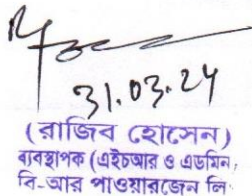 31.03.24
(রাজিব হোসেন)
ব্যবস্থাপক (এইচআর ও এডমিন)
বি-আর পাওয়ারজেন লি: